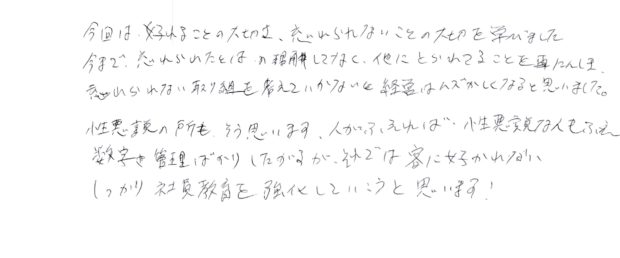 今回は好かれることの大切さ、忘れられないことの大切を学びました
今まで、忘れられたとは 理解してなく、他にとられてることを
忘れられない取り組を考えていかないと経営はムズかしくなると思いました。
性悪説の所も、そう思います、人がふえれば、性悪説な人もふえ
数字を管理ばかりしたがるが、それでは客に好かれない
しっかり社員教育を強化していこうと思います!